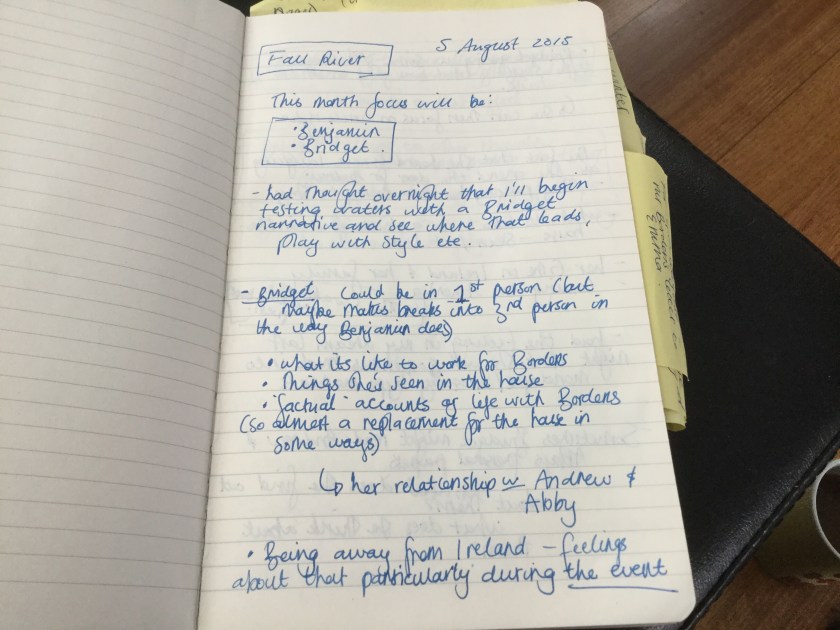 5 August 2015
Fall River
This month focus will be:
• Benjamin
• Bridget.
- had thought overnight that I'll begin
testing waters with a Bridget
narrative and see where that leads,
play with style etc.
- Bridget could be in 1st person (but
maybe makes breaks into 3rd person in
the way Benjamin does)
• what its like to work for Bordens
• Things she's seen in the house
• 'factual' accounts of life with Bordens
(so almost a replacement for the house in
some ways)
↳ her relationship w Andrew &
Abby
• Being away from Ireland – feelings
about that particularly during the event